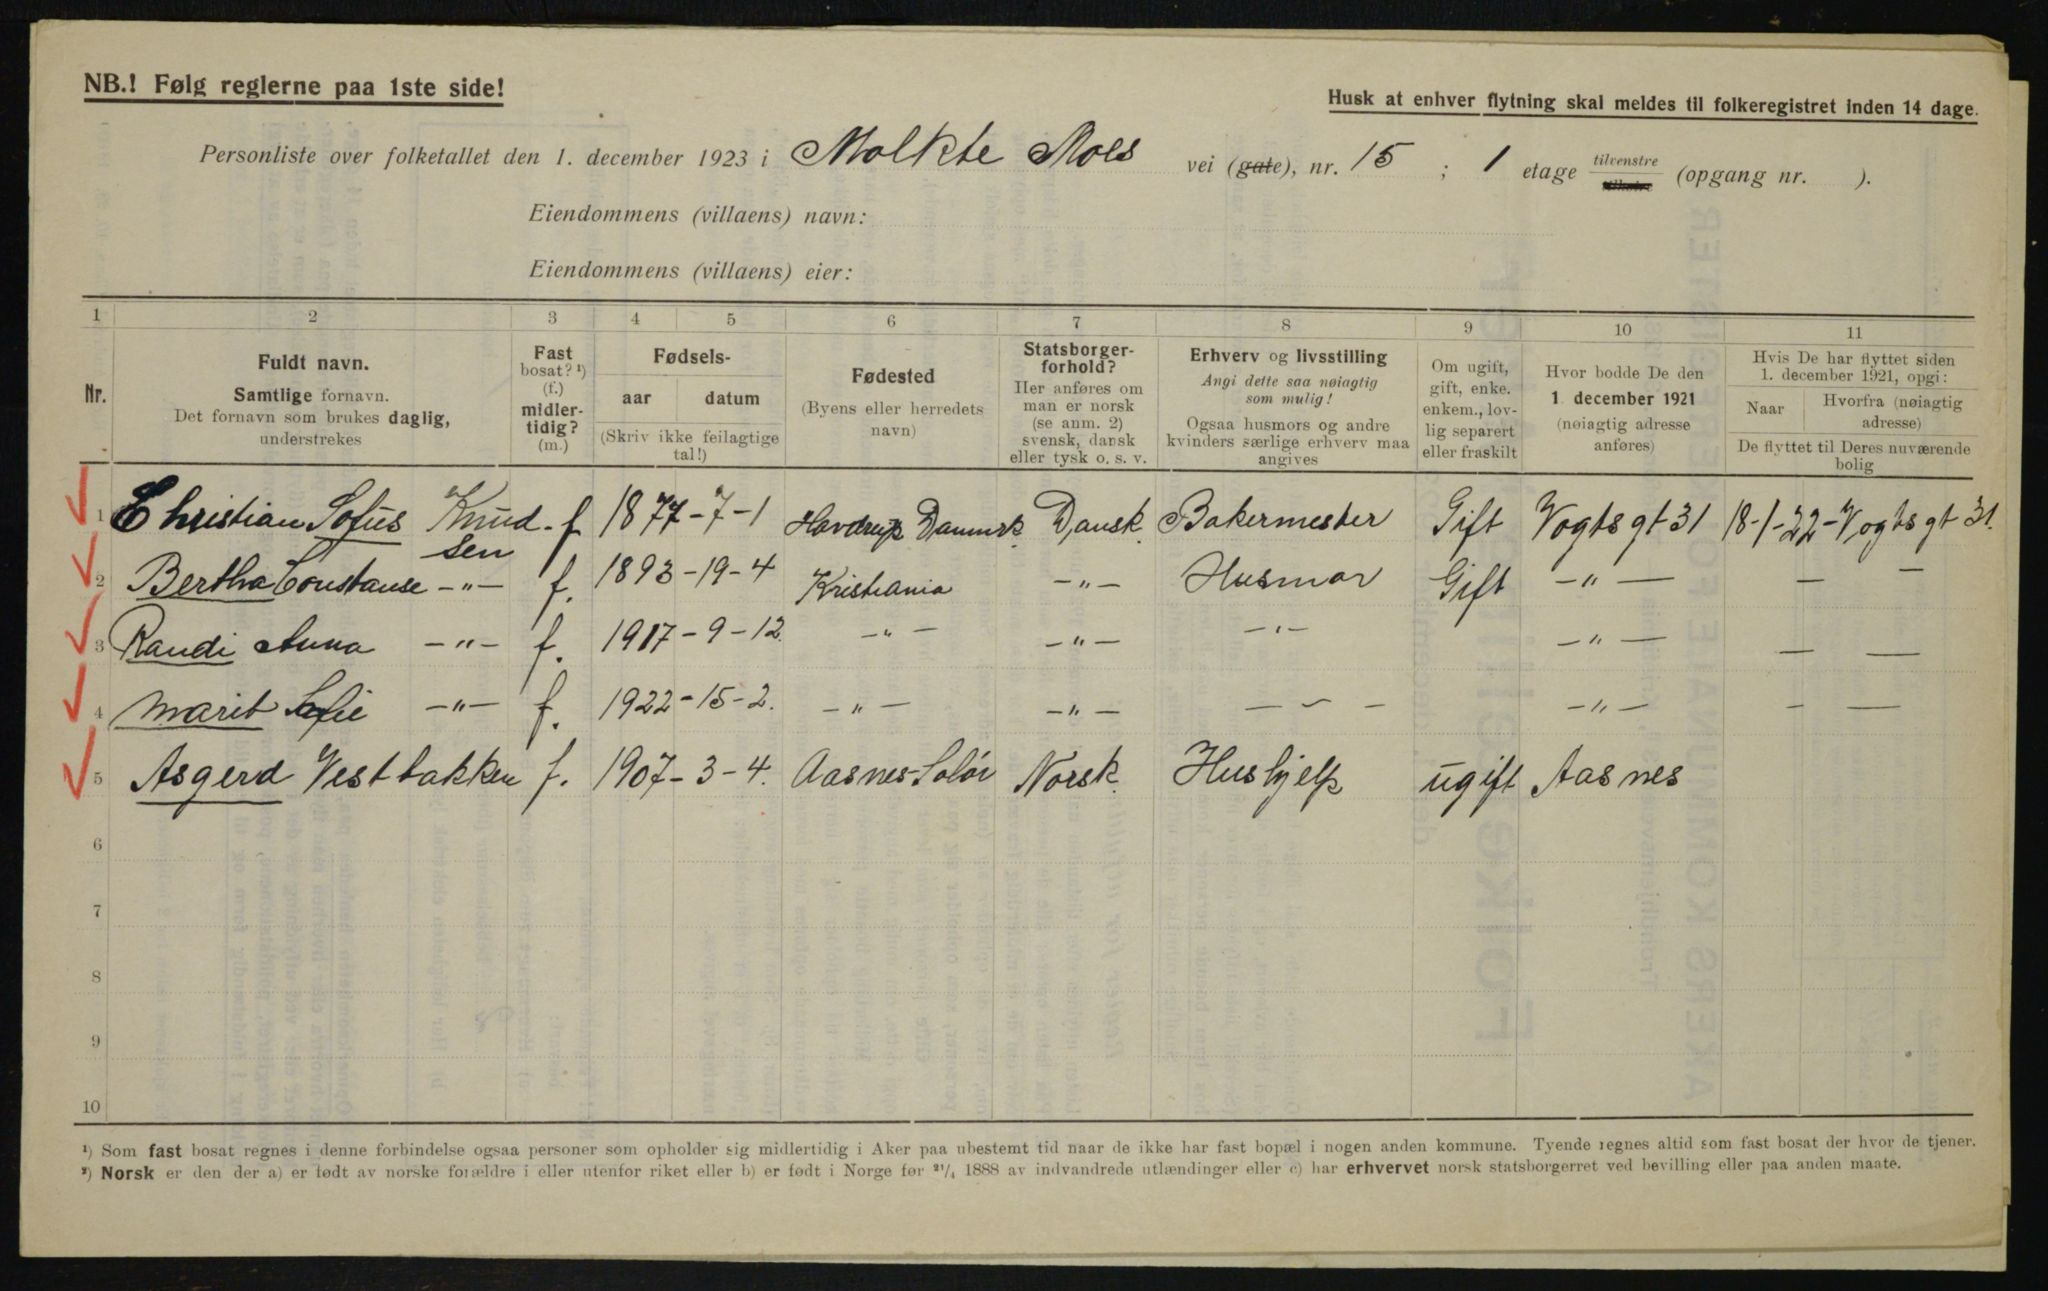 NB.! Følg reglerne paa 1ste side!
Husk at enhver flytning skal meldes til folkeregistret inden 14 dage.
Personliste over folketallet den 1. december 1923 i Molkte Moes vei (gate), nr. 15 ; 1 etage tilvenstre (opgang nr. ).
Eiendommens (villaens) navn:
Eiendommens (villaens) eier:
1 2 3 4 5 6 7 8 9 10 11
Nr.
Fuldt navn.
Samtlige fornavn.
Det fornavn som brukes daglig,
understrekes
Fast
bosat? ¹)
(f.)
midler-
tidig?
(m.)
Fødsels-
aar datum
(Skriv ikke feilagtige
tal!)
Fødested
(Byens eller herredets
navn)
Statsborger-
forhold?
Her anføres om
man er norsk
(se anm. 2)
svensk, dansk
eller tysk o. s. v.
Erhverv og livsstilling
Angi dette saa nøiagtig
som mulig!
Ogsaa husmors og andre
kvinders særlige erhverv maa
angives
Om ugift,
gift, enke.
enkem., lov-
lig separert
eller fraskilt
Hvor bodde De den
1 december 1921
(nøiagtig adresse
anføres)
Hvis De har flyttet siden
1. december 1921, opgi:
Naar Hvorfra (nøiagtig
adresse)
De flyttet til Deres nuværende
bolig
1 Christian Sofus Knud- f 1877-7-1 Havdrup Danmrk. Dansk. Bakermester Gift Vogts gt 31 18-1-22-Vogts gt 31.
sen
2 Bertha Constanse -"- f. 1893-19-4 Kristiania -"- Husmor Gift -"- — —
3 Randi Anna -"- f. 1917-9-12. -"- -"- -"- -"- — —
4 Marit Sofie -"- f. 1922-15-2. -"- -"- — - - -"- — —
5 Asgerd Vestbakken f. 1907-3-4. Aasnes-Solør Norsk. Hushjelp ugift Aasnes
6
7
8
9
10
¹) Som fast bosat regnes i denne forbindelse ogsaa personer som opholder sig midlertidig i Aker paa ubestemt tid naar de ikke har fast bopæl i nogen anden kommune. Tyende regnes altid som fast bosat der hvor de tjener.
²) Norsk er den der a) er født av norske forældre i eller utenfor riket eller b) er født i Norge før 21/4 1888 av indvandrede utlændinger eller c) har erhvervet norsk statsborgerret ved bevilling eller paa anden maate.